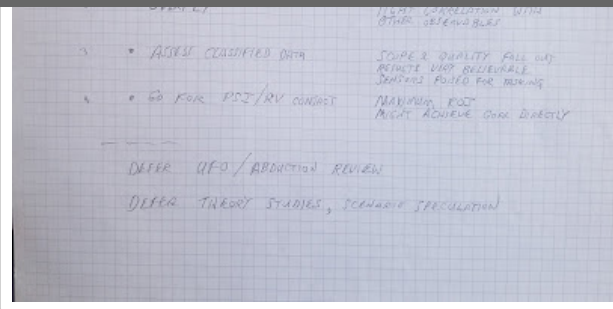 TIGHT CORRELATION WITH
OTHER OBSERVABLES
• ASSESS CLASSIFIED DATA
SCOPE & QUALITY FALL OUT
RESULTS VERY BELIEVABLE
SENSORS POISED FOR TASKING
• GO FOR PSI/RV CONTACT
MAXIMUM
MIGHT ACHIEVE GOAL DIRECTLY
DEFER UFO/ABDUCTION REVIEW
DEFER THEORY STUDIES, SCENARIO SPECULATION